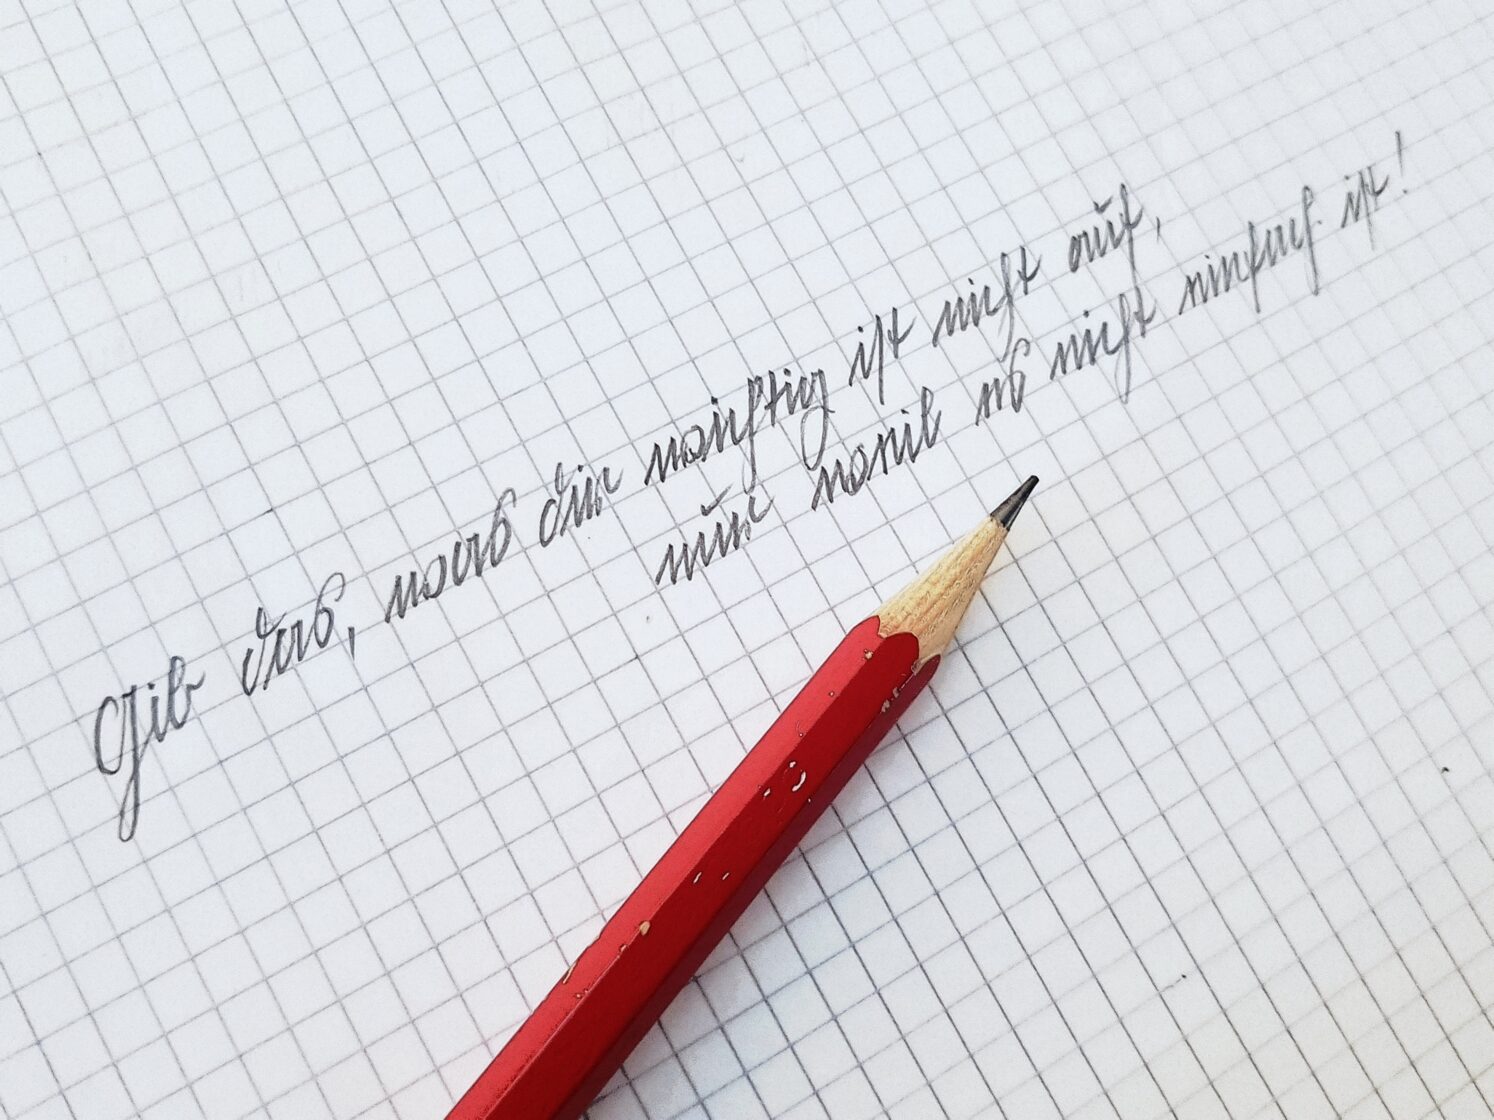 Gib das, was dir wichtig ist nicht auf,
nur weil es nicht einfach ist!